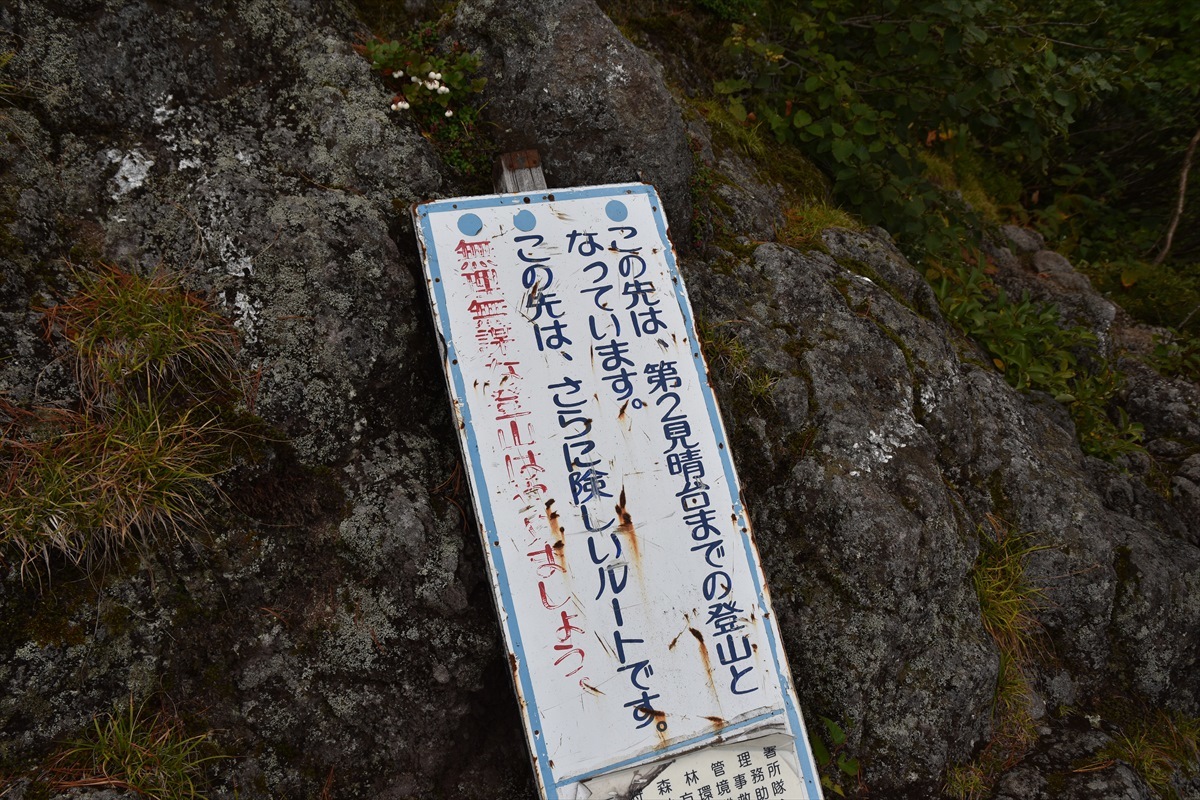 この先は、第2見晴台までの登山と
なっています。
この先は、さらに険しいルートです。
無理無謀な登山はやめましょう。
森林管理署
環境事務所
救助隊